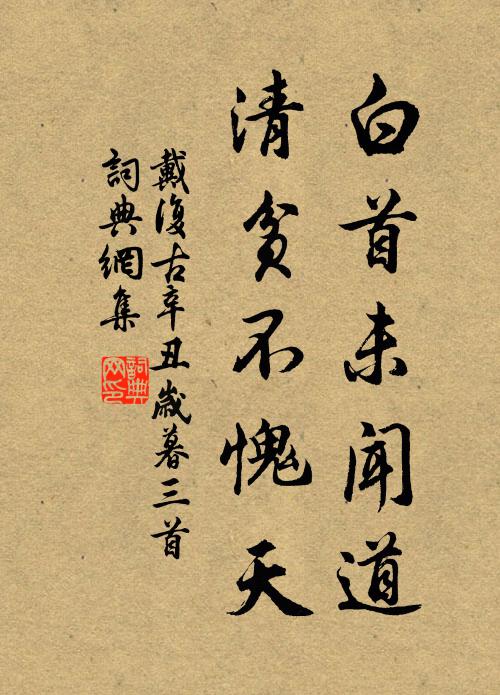 白首未聞道
清貧不愧天
戴復古辛丑歲暮三首
詞典網集
詞典网印